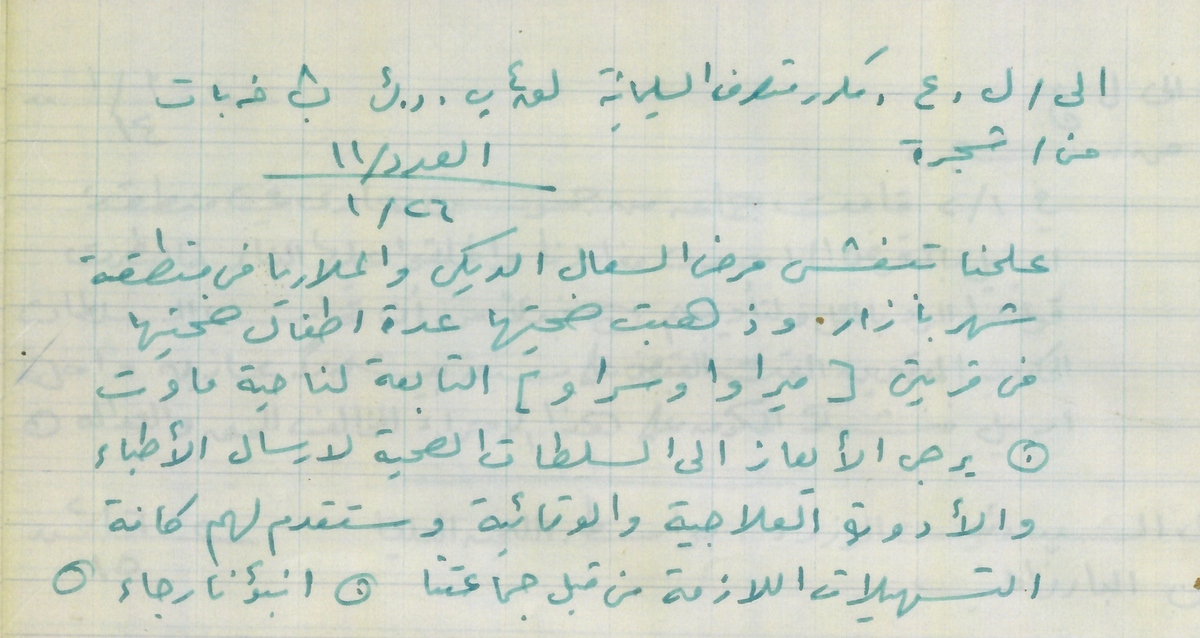 الى / ل . ع . مكرر متصرف السليمانية
من / شجرة
العدد / ١١
٢٦ / ١
علمنا تنفشى مرض السعال الديكي والملاريا في منطقة
شهربازار. وذهبت ضحيتها عدة اطفال ضحيتها
في قريتي [ ميراوا وسراو ] التابعة لناحية ماوت
⊙ يرجى الأيعاز الى السلطات الصحية لارسال الأطباء
والأدوية العلاجية والوقائية وستقدم لهم كافة
التسهيلات اللازمة من قبل جماعتنا ⊙ انبؤنا رجاء ⊙